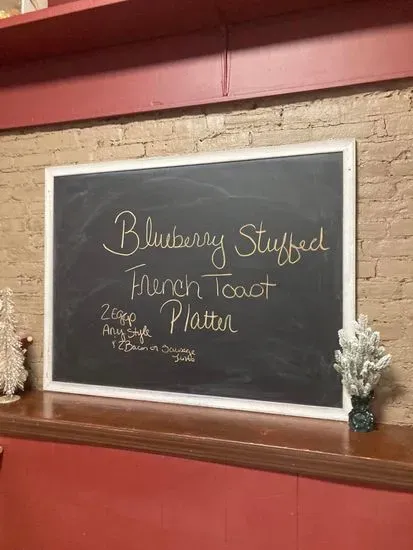 Blueberry Stuffed
French Toast
Platter
2 Eggs
Any Style
& 2 Bacon or Sausage
Links